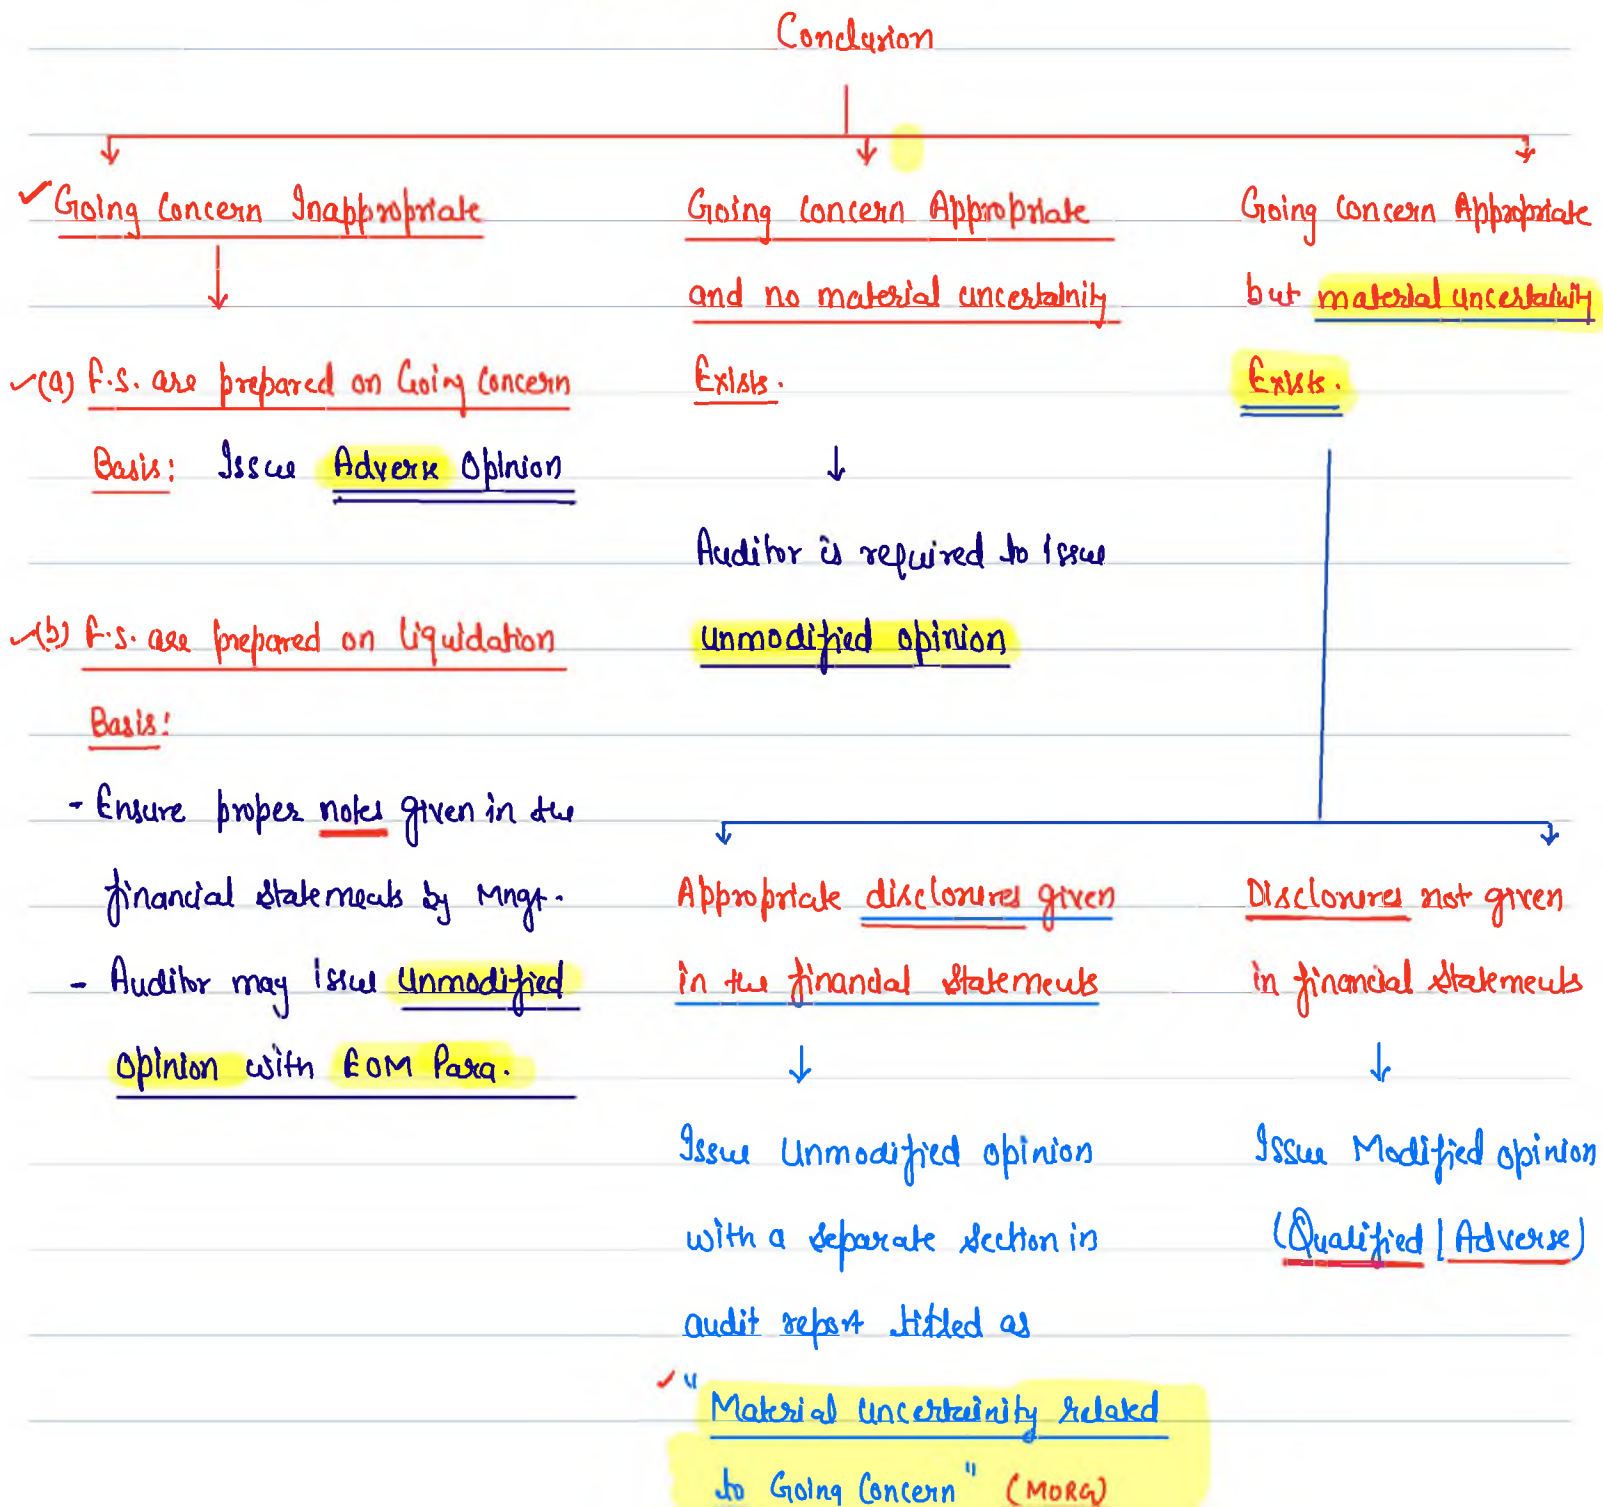 Conclusion
Going Concern Inappropriate
(a) F.S. are prepared on Going Concern
Basis: Issue Adverse Opinion
(b) F.S. are prepared on liquidation
Basis:
- Ensure proper notes given in the
financial statements by Mngt.
- Auditor may issue Unmodified
opinion with EOM Para.
Going Concern Appropriate
and no material uncertainity
Exists.
Auditor is required to issue
unmodified opinion
Going Concern Appropriate
but material uncertainity
Exists.
Appropriate disclosures given
in the financial statements
Issue Unmodified opinion
with a separate section in
audit report titled as
"Material uncertainity related
to Going Concern" (MURG)
Disclosures not given
in financial statements
Issue Modified opinion
(Qualified | Adverse)